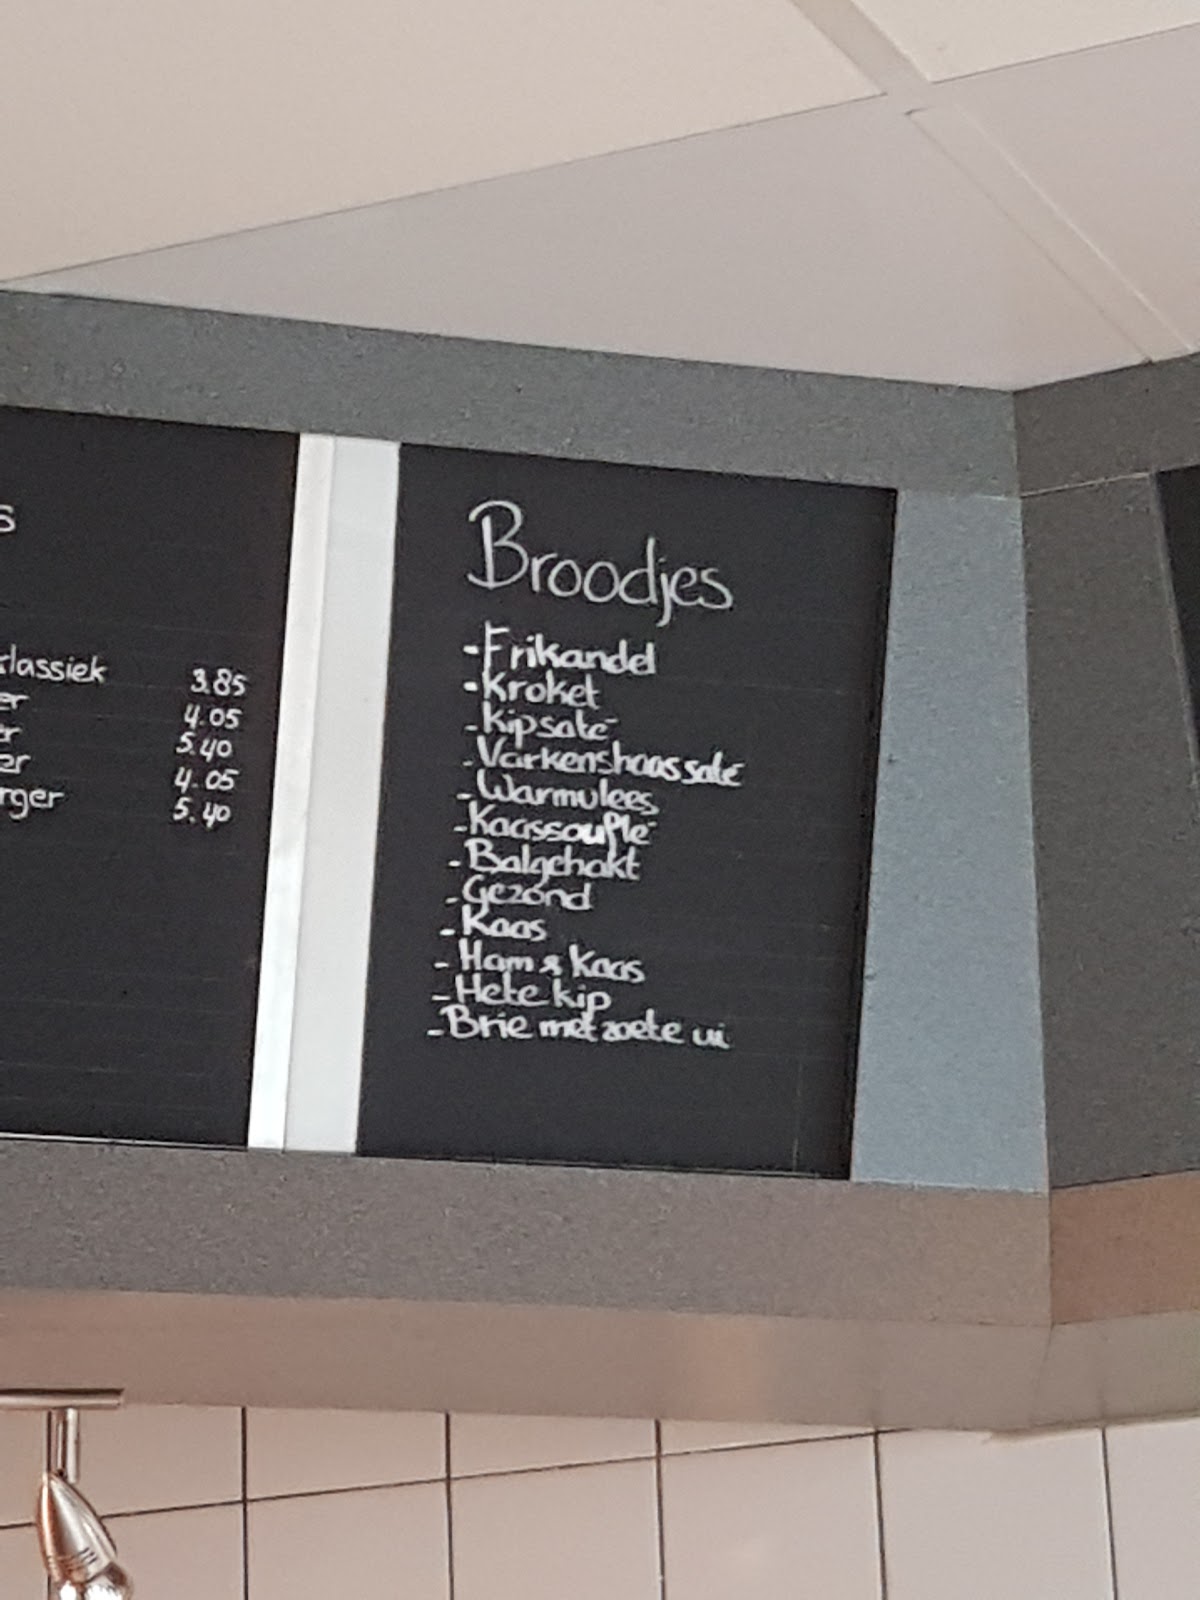 s
klassiek 3.85
er 4.05
er 5.40
er 4.05
rger 5.40
Broodjes
-Frikandel
-Kroket
-Kipsaté
-Varkenshaas saté
-Warmvlees
-Kaassouflé
-Balgehakt
-Gezond
-Kaas
-Ham & Kaas
-Hete kip
-Brie met zoete ui